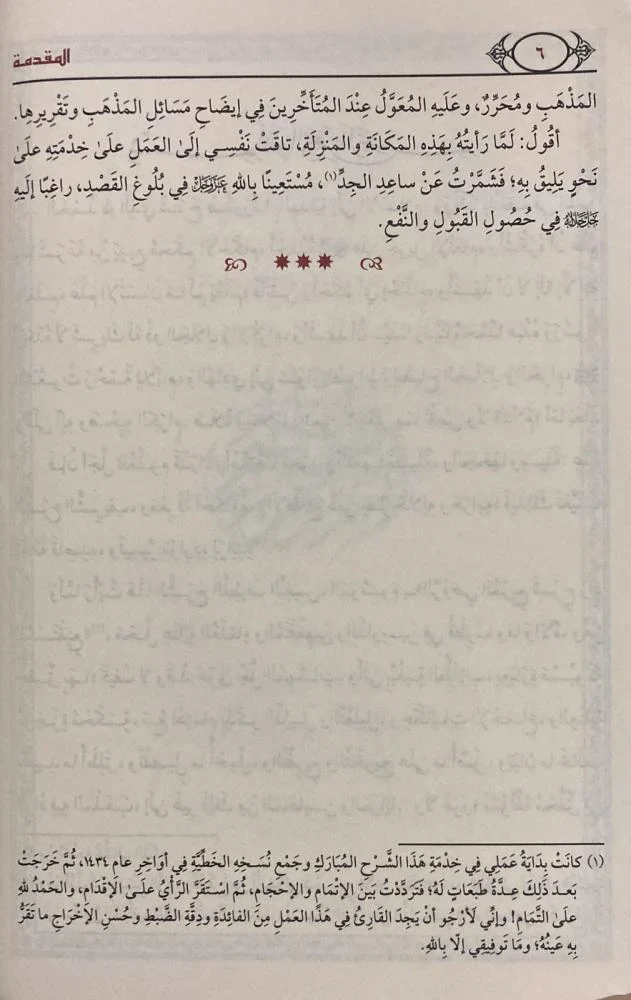 ٦
المقدمة
المَذْهَبِ ومُحَرِّرٌ، وعَلَيهِ المُعَوَّلُ عِنْدَ المُتَأَخِّرِينَ فِي إيضَاحِ مَسَائِلِ المَذْهَبِ وتَقْرِيرِها.
أقُولُ: لَمَّا رَأيتُهُ بِهَذِهِ المَكَانَةِ والمَنْزِلَةِ، تاقَتْ نَفْسِي إلىٰ العَمَلِ علىٰ خِدْمَتِهِ علىٰ
نَحْوٍ يَلِيقُ بِهِ؛ فَشَمَّرْتُ عَنْ ساعِدِ الجِدِّ(١)، مُسْتَعِينًا بِاللهِ عَزَّوَجَلَّ فِي بُلُوغِ القَصْدِ، راغِبًا إلَيهِ
جَلَّجَلَالُهُ فِي حُصُولِ القَبُولِ والنَّفْعِ.
(١) كانَتْ بِدَايَةُ عَمَلِي فِي خِدْمَةِ هَذَا الشَّرْحِ المُبَارَكِ وجَمْعِ نُسَخِهِ الخَطِّيَّةِ فِي أوَاخِرِ عامِ ١٤٣٤، ثُمَّ خَرَجَتْ
بَعدَ ذَلِكَ عِدَّةُ طَبَعَاتٍ لَهُ؛ فَتَرَدَّدْتُ بَينَ الإتْمَامِ والإحْجَامِ، ثُمَّ اسْتَقَرَّ الرَّأيُ علىٰ الإقْدَامِ، والحَمْدُ للهِ
علىٰ التَّمَامِ! وإنِّي لَأرْجُو أنْ يَجِدَ القَارِئُ فِي هَذَا العَمَلِ مِنَ الفَائِدَةِ ودِقَّةِ الضَّبْطِ وحُسْنِ الإخْرَاجِ ما تَقَرُّ
بِهِ عَينُهُ؛ ومَا تَوفِيقِي إلّا بِاللهِ.